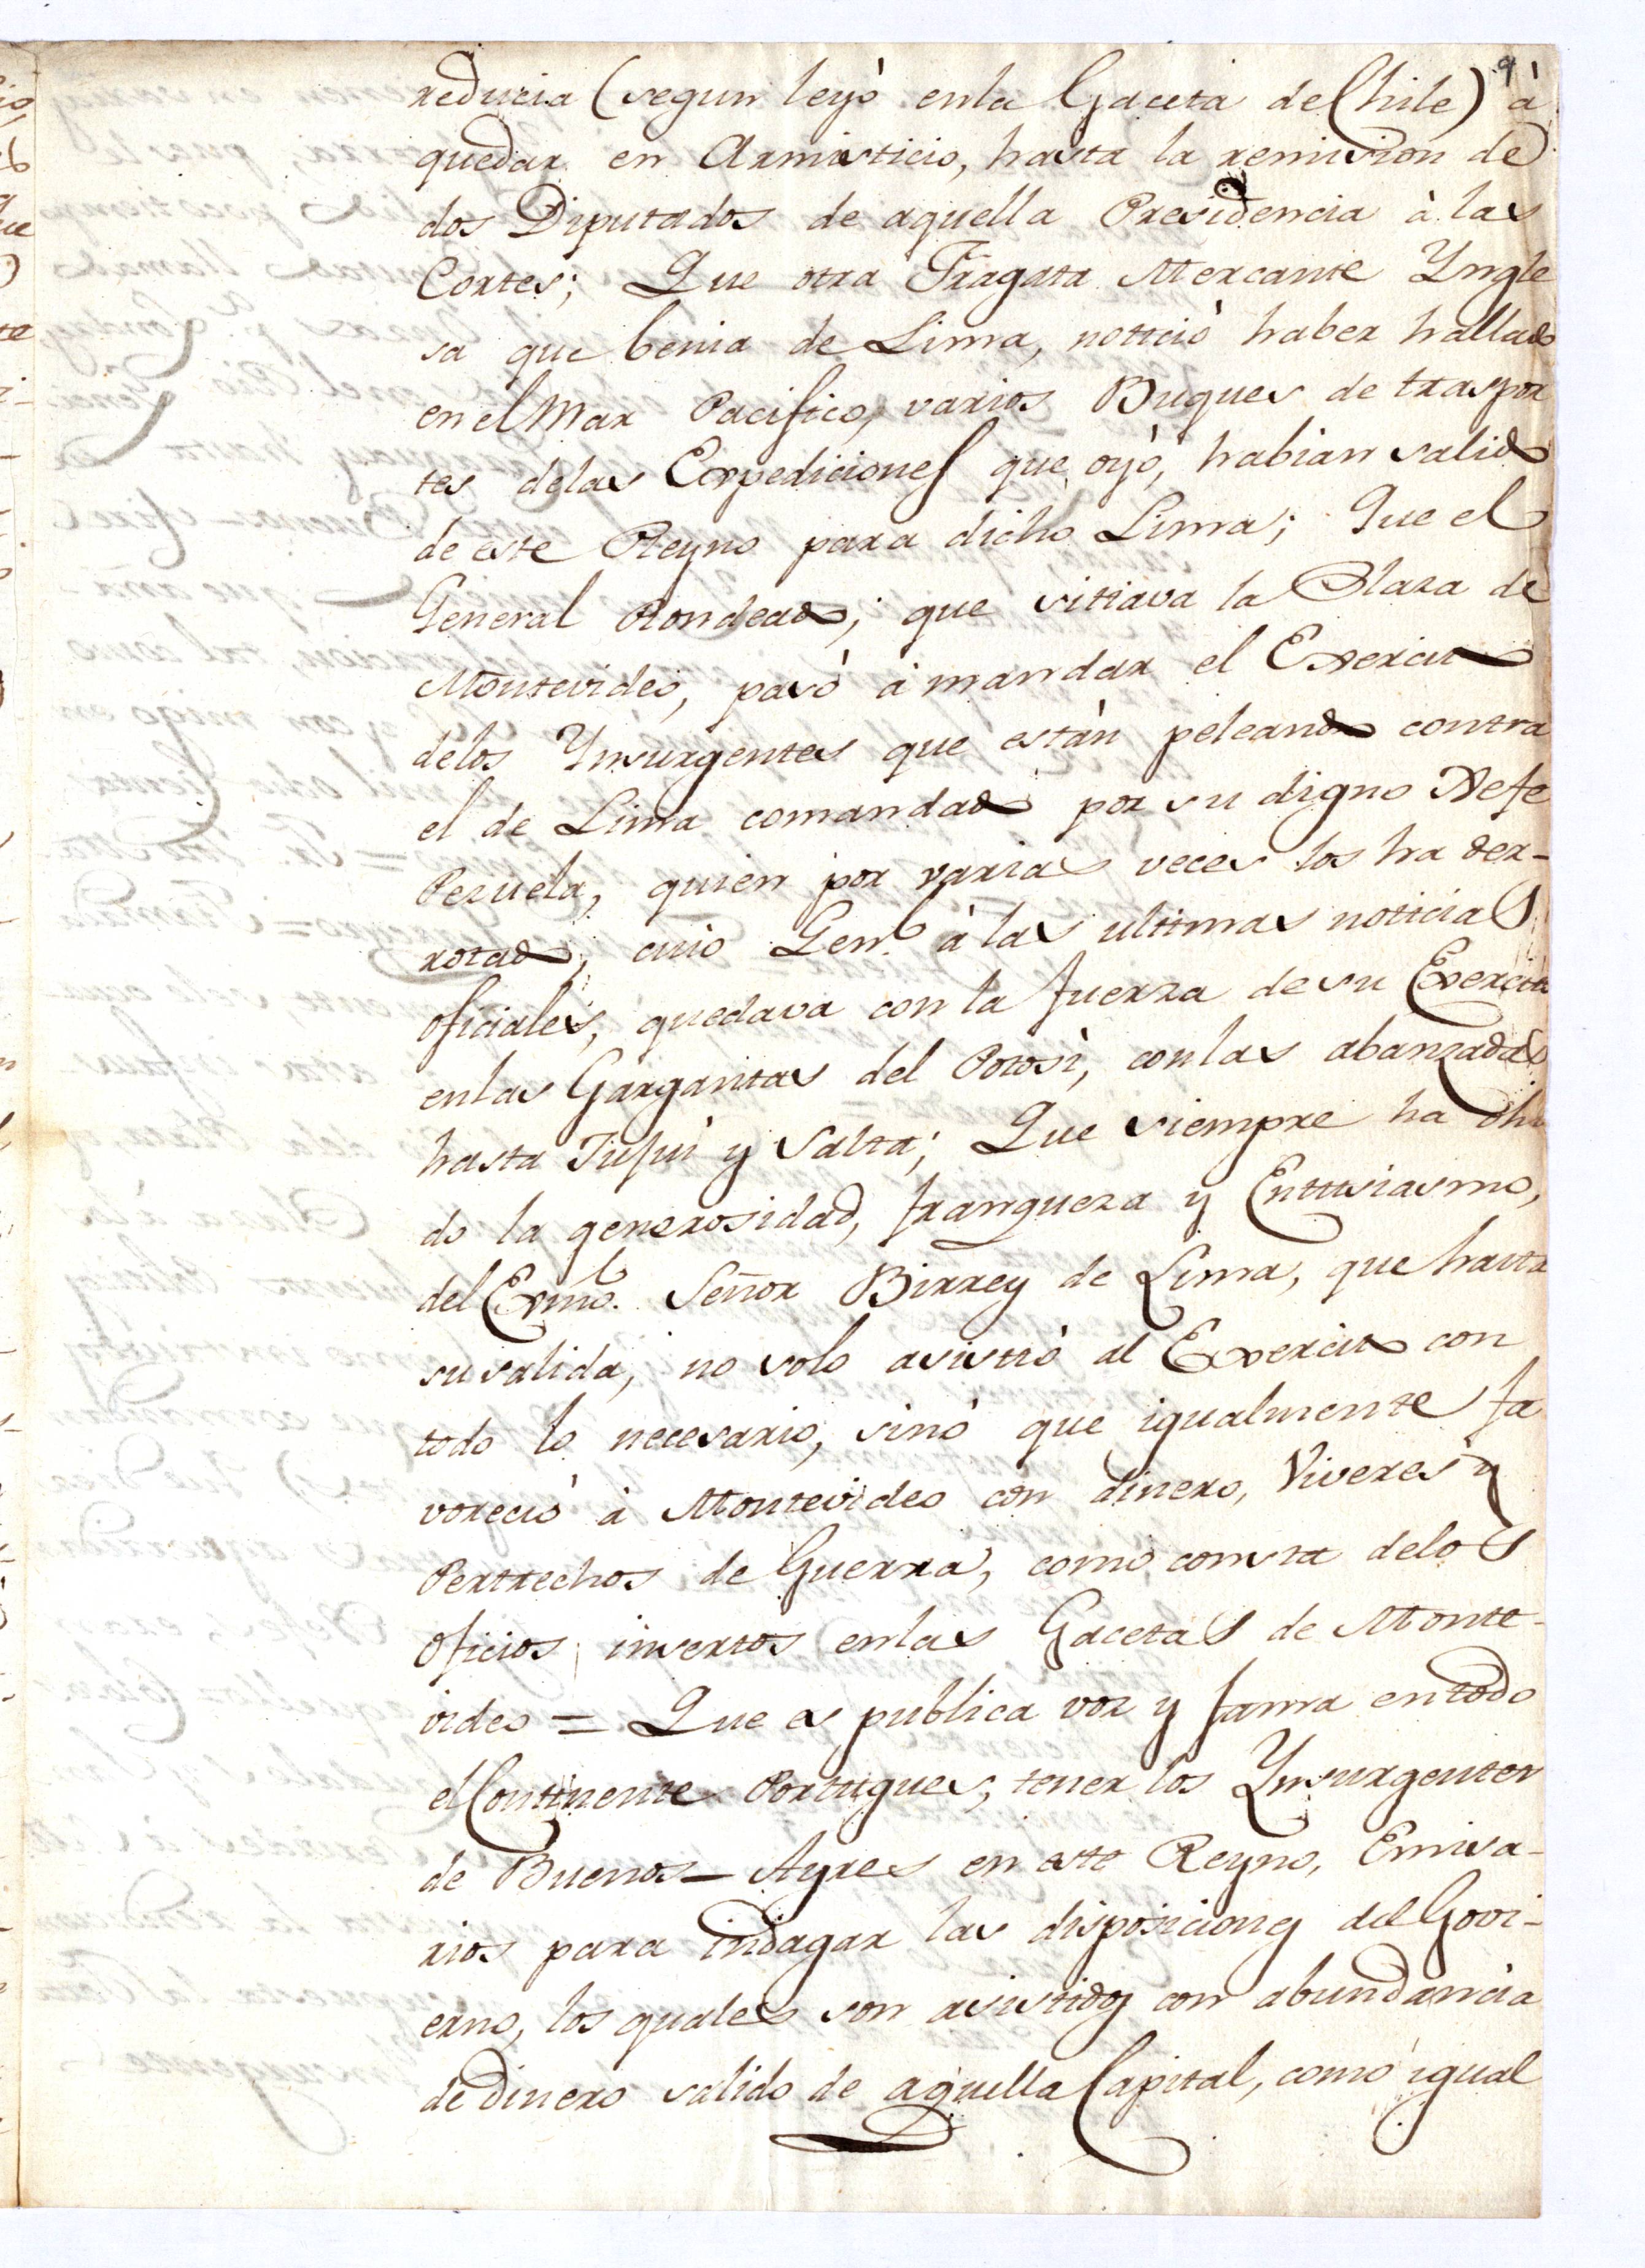 9
reducia (segun leyò enla Gaceta de Chile) à
quedar en Armisticio, hasta la remision de
dos Diputados de aquella Presidencia à las
Cortes; Que otra Fragata Mercante Yngle
sa que benia de Lima, noticiò haber hallado
en el Mar Pacifico, varios Buques de traspor
tes delas Expediciones que oyò, habian salido
de este Reyno para dicho Lima; Que el
General Rondeado; que sitiava la Plaza de
Montevideo, pasò à mandar el Exercito
delos Ynsurgentes que estàn peleando contra
el de Lima comandado por su digno Xefe
Pezuela, quien por varias veces los ha der-
rotado, cuio Gen.l à las ultimas noticias
oficiales, quedava con la fuerza de su Exercito
enlas Gargantas del Potosì, conlas abanzadas
hasta Jujui y Salta; Que siempre ha ohi
do la generosidad, franqueza y Entusiasmo,
del Exmo. Señor Birrey de Lima, que hasta
su salida, no solo asistiò al Exercito con
todo lo necesario, sinò que igualmente fa
voreciò à Montevideo con dinero, Viveres y
Pertrechos de Guerra, como consta delos
oficios insertos enlas Gacetas de Monte-
video = Que es publica voz y fama en todo
el Continente Portugues, tener los Ynsurgentes
de Buenos-Ayres en este Reyno, Emisa-
rios para indagar las disposiciones del Govi-
erno, los quales son asistidos con abundancia
de dinero salido de aquella Capital, como igual